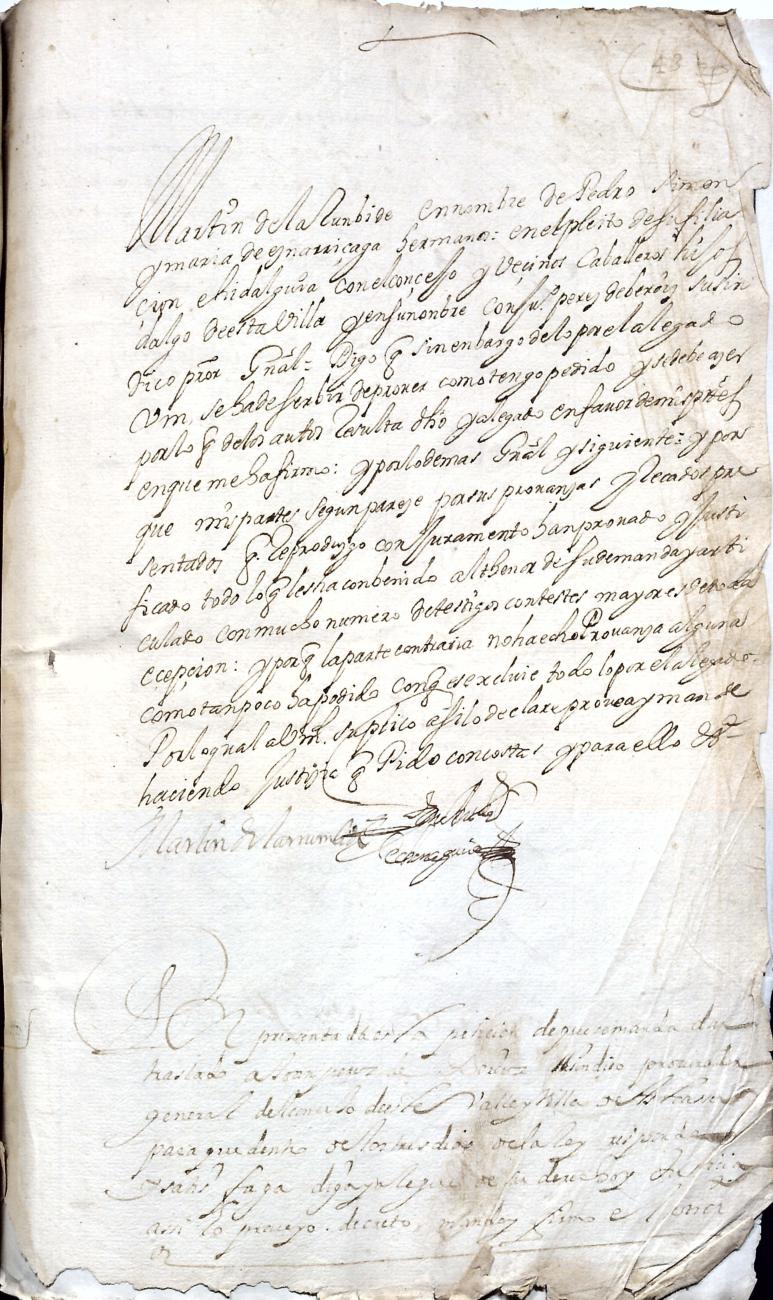 48
Martin de la Runbide en nombre de Pedro Simon
y maria de ynarricaga hermanos: en el pleito de su filia
cion e hidalguia con el concejo y Vecinos Caballeros hijos
dalgo de esta Villa y en su nonbre Con su perez de sin
dico pror Gnal = Digo q sin enbargo de lo por el alegado
Vm, se ha de serbir de prover como tengo pedido y se debe açer
por lo q de los autos resulta dho y alegado en favor de mis ptes
en que me hafirmo: y por lo demas Gnal y siguiente: y por
que mis partes segun pareçe por sus provanças y Recados pre
sentados q Reproduzgo con Juramento han provado y Justi
ficado todo lo q les ha conbenido al thenor de su demanda y arti
culado con mucho numero de testigos contestes mayores de toda
ecepcion: y porq la parte contraria no ha echo Provança alguna
como tanpoco ha podido Conq se excluie todo lo por el alegado =
Por lo qual a Vm. suplico assi lo declare provea y mande
haciendo Justiçia q Pido con costas y para ello &ª
Martin de larrumbide
presentada esta peticion dixo que se manda dar
traslado a Joan perez de sindico procurador
general del concejo deste Valle y Villa de
para que dentro de los tres dias de la ley responda
y faga diga y alegue de su derecho y Justicia
assi lo proveyo decreto mando y firmo el señor